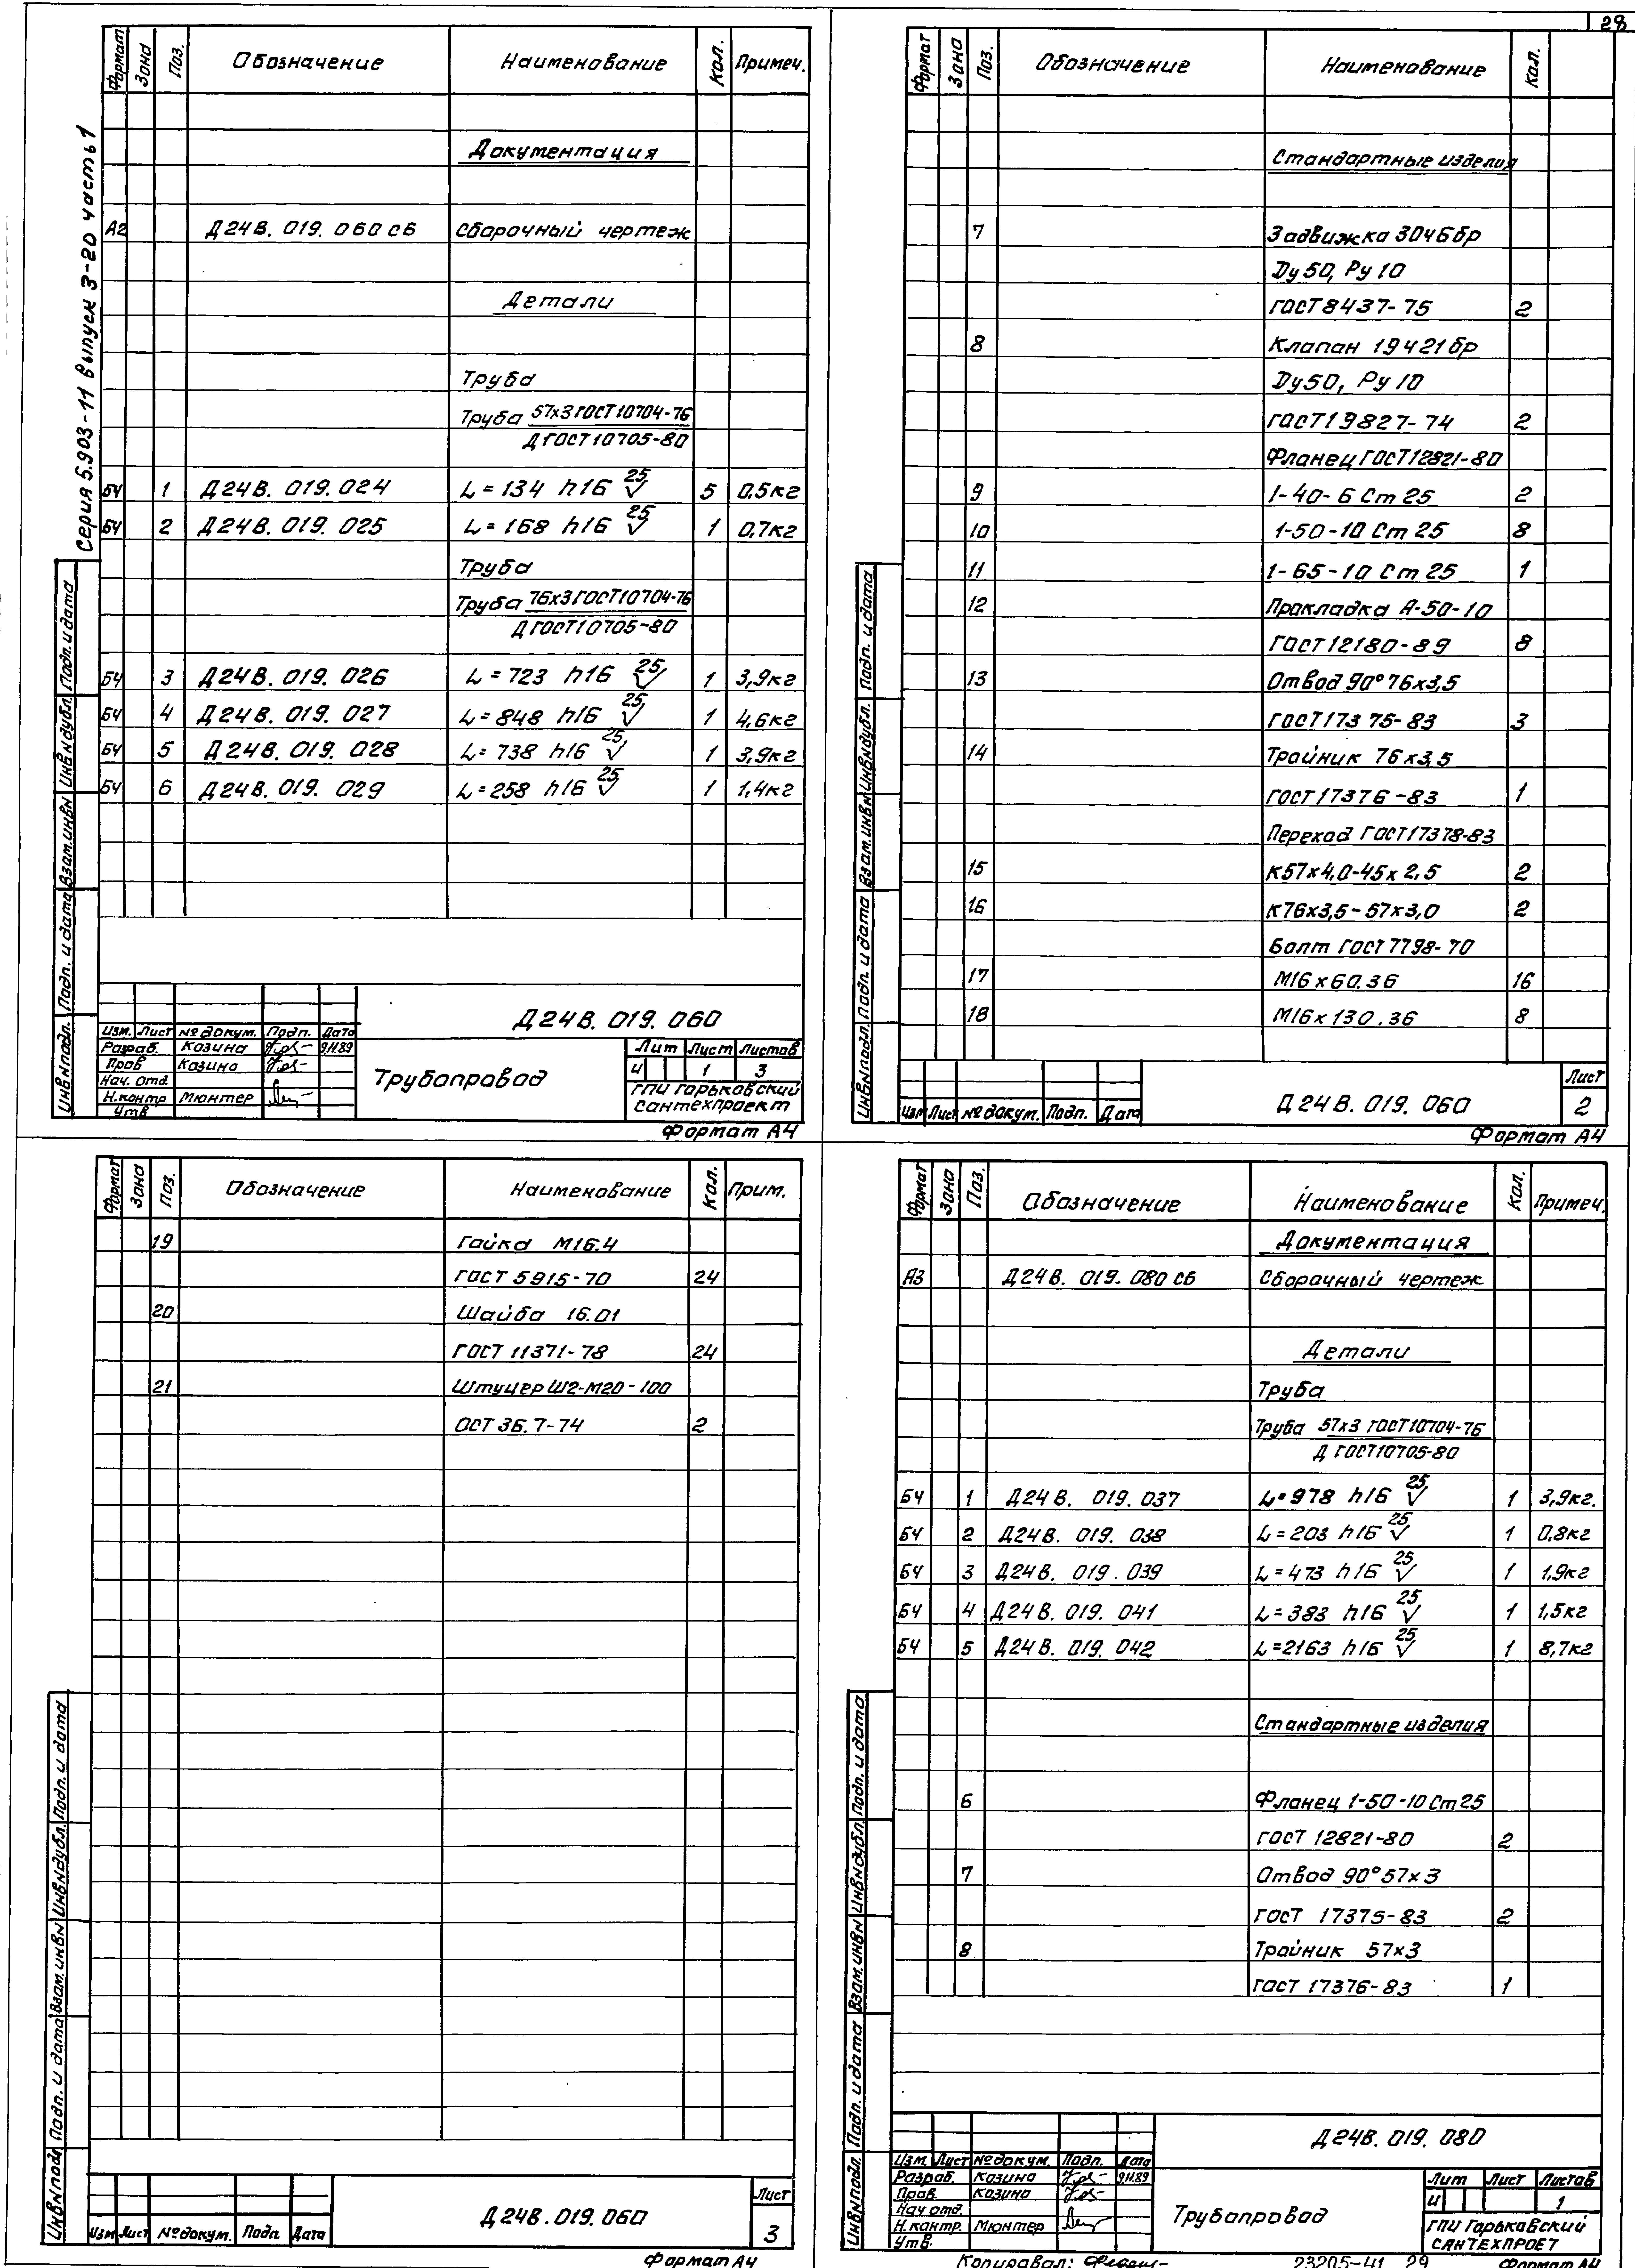 28
Серия 5.903-11 выпуск 3-20 часть 1
Формат Зона Поз. Обозначение Наименование Кол. Примеч.
Документация
А2 Д24В. 019. 060 СБ Сборочный чертеж
Детали
Труба
Труба 57х3 ГОСТ 10704-76
Д ГОСТ 10705-80
БЧ 1 Д24В. 019. 024 L=134 h16 25√ 5 0,5кг
БЧ 2 Д24В. 019. 025 L=168 h16 25√ 1 0,7кг
Труба
Труба 76х3 ГОСТ 10704-76
Д ГОСТ 10705-80
БЧ 3 Д24В. 019. 026 L=723 h16 25√ 1 3,9кг
БЧ 4 Д24В. 019. 027 L=848 h16 25√ 1 4,6кг
БЧ 5 Д24В. 019. 028 L=738 h16 25√ 1 3,9кг
БЧ 6 Д24В. 019. 029 L=258 h16 25√ 1 1,4кг
Инв.№подл. Подп. и дата Взам.инв№ Инв№дубл. Подп. и дата
Д24В. 019. 060
Изм. Лист № докум. Подп. Дата
Разраб. Козина 9.11.89
Пров Козина
Нач. отд.
Н.контр Мюнтер
Утв
Трубопровод
Лит Лист Листов
И 1 3
ГПИ Горьковский
Сантехпроект
Формат А4
Формат Зона Поз. Обозначение Наименование Кол.
Стандартные изделия
7 Задвижка 30ч6бр
Dу 50, Ру 10
ГОСТ 8437-75 2
8 Клапан 19ч21бр
Dу50, Ру 10
ГОСТ 19827-74 2
Фланец ГОСТ 12821-80
9 1-40-6 Ст 25 2
10 1-50-10 Ст 25 8
11 1-65-10 Ст 25 1
12 Прокладка А-50-10
ГОСТ 12180-89 8
13 Отвод 90° 76х3,5
ГОСТ 17375-83 3
14 Тройник 76х3,5
ГОСТ 17376-83 1
Переход ГОСТ 17378-83
15 К57х4,0-45х2,5 2
16 К76х3,5-57х3,0 2
Болт ГОСТ 7798-70
17 М16х60.36 16
18 М16х130.36 8
Инв№подл. Подп. и дата Взам.инв№ Инв№дубл. Подп. и дата
Изм Лист № докум. Подп. Дата
Д24В. 019. 060
Лист
2
Формат А4
Формат Зона Поз. Обозначение Наименование Кол. Прим.
19 Гайка М16.4
ГОСТ 5915-70 24
20 Шайба 16.01
ГОСТ 11371-78 24
21 Штуцер Ш2-М20-100
ОСТ 36.7-74 2
Инв№подл Подп. и дата Взам.инв№ Инв№дубл. Подп. и дата
Изм Лист № докум. Подп. Дата
Д24В. 019. 060
Лист
3
Формат А4
Формат Зона Поз. Обозначение Наименование Кол. Примеч.
Документация
А3 Д24В. 019. 080 СБ Сборочный чертеж
Детали
Труба
Труба 57х3 ГОСТ 10704-76
Д ГОСТ 10705-80
БЧ 1 Д24В. 019. 037 L=978 h16 25√ 1 3,9кг.
БЧ 2 Д24В. 019. 038 L=203 h16 25√ 1 0,8кг
БЧ 3 Д24В. 019. 039 L=473 h16 25√ 1 1,9кг
БЧ 4 Д24В. 019. 041 L=383 h16 25√ 1 1,5кг
БЧ 5 Д24В. 019. 042 L=2163 h16 25√ 1 8,7кг
Стандартные изделия
6 Фланец 1-50-10 Ст25
ГОСТ 12821-80 2
7 Отвод 90° 57х3
ГОСТ 17375-83 2
8 Тройник 57х3
ГОСТ 17376-83 1
Инв№подл. Подп. и дата Взам.инв№ Инв№дубл Подп. и дата
Д24В. 019. 080
Изм. Лист № докум. Подп. Дата
Разраб. Козина 9.11.89
Пров. Козина
Нач отд.
Н.контр. Мюнтер
Утв.
Трубопровод
Лит Лист Листов
И 1
ГПИ Горьковский
САНТЕХПРОЕТ
Копировал: 23205-41 29 Формат А4